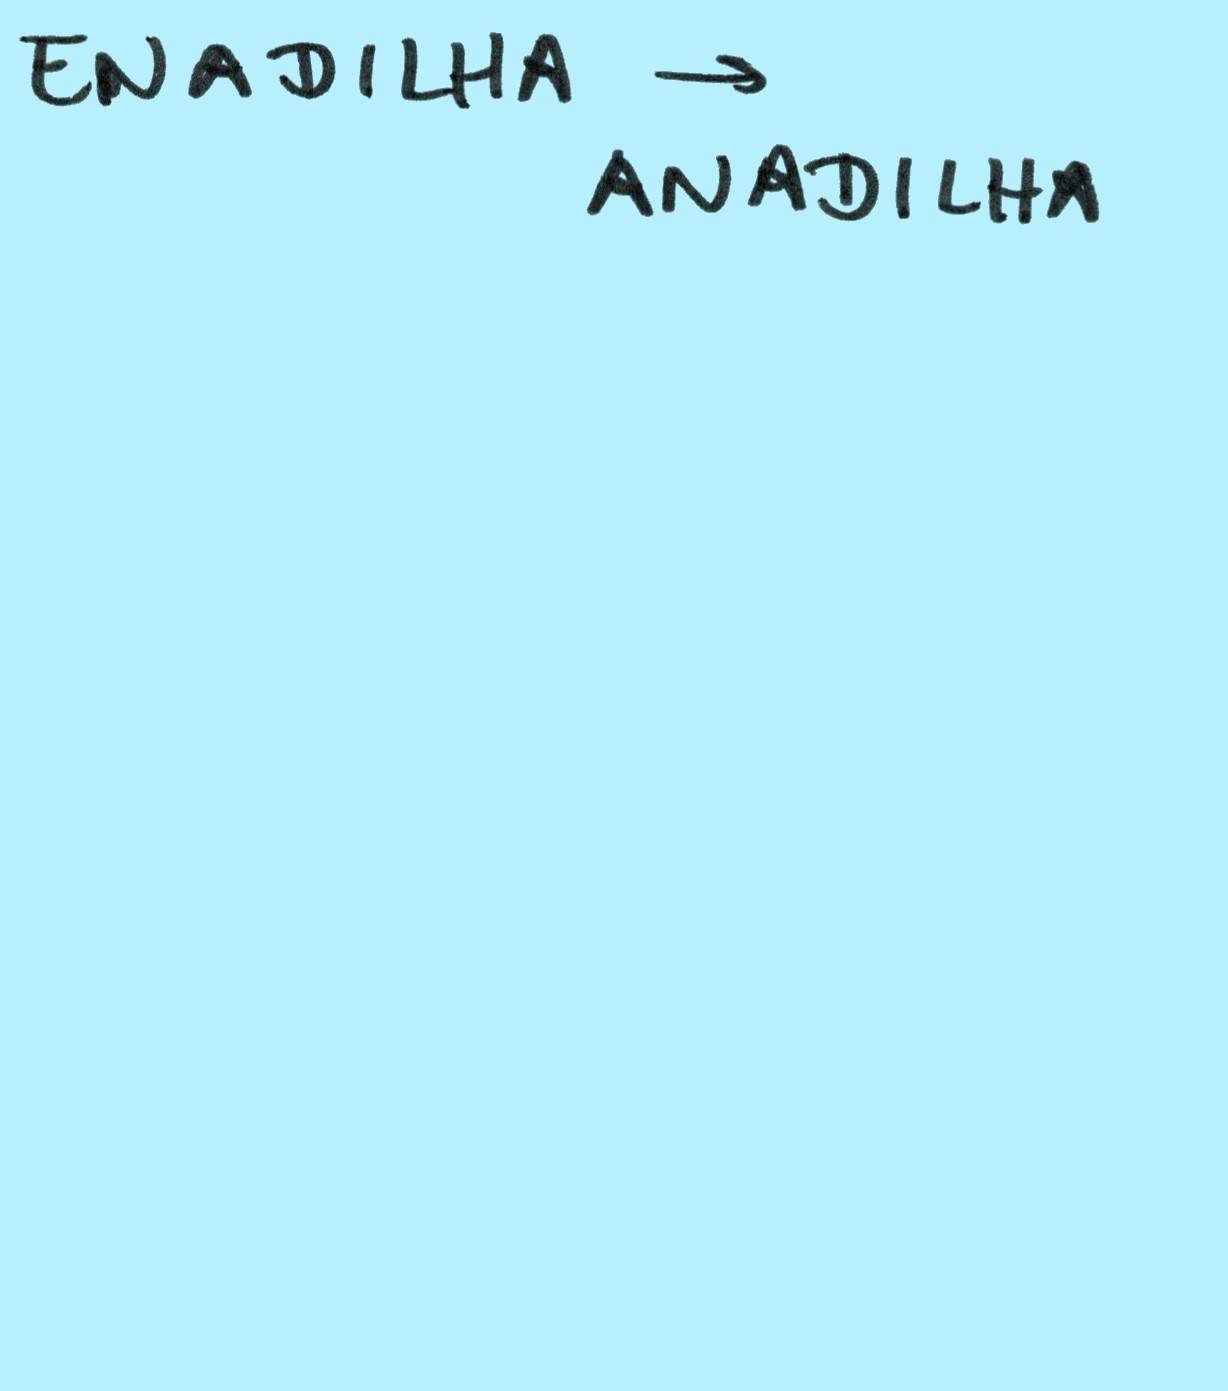 ENADILHA →
ANADILHA